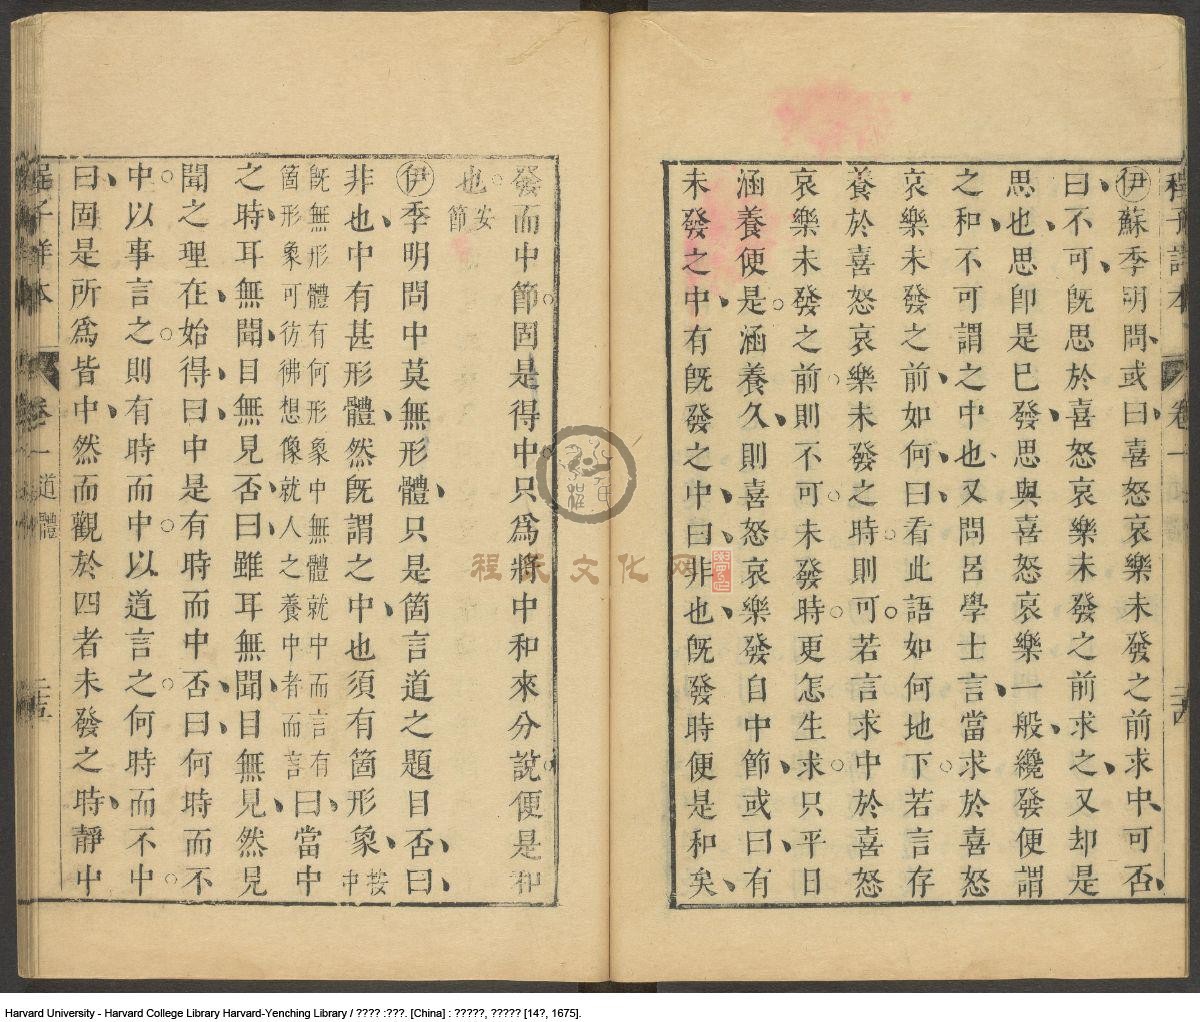 程子詳本
卷一
二十四
伊蘇季明問或曰喜怒哀樂未發之前求中可否
曰不可旣思於喜怒哀樂未發之前求之又却是
思也思卽是已發思與喜怒哀樂一般纔發便謂
之和不可謂之中也又問呂學士言當求於喜怒
哀樂未發之前如何曰看此語如何地下若言存
養於喜怒哀樂未發之時則可若言求中於喜怒
哀樂未發之前則不可未發時更怎生求只平日
涵養便是涵養久則喜怒哀樂發自中節或曰有
未發之中有旣發之中曰非也旣發時便是和矣
發而中節固是得中只爲將中和來分說便是和
也安
節
伊季明問中莫無形體只是箇言道之題目否曰
非也中有甚形體然旣謂之中也須有箇形象按
中
旣無形體有何形象中無體就中而言有
箇形象可彷彿想像就人之養中者而言曰當中
之時耳無聞目無見否曰雖耳無聞目無見然見
聞之理在始得曰中是有時而中否曰何時而不
中以事言之則有時而中以道言之何時而不中
曰固是所爲皆中然而觀於四者未發之時靜中
程子詳本
卷一
道體
二十五
程氏文化网
Harvard University - Harvard College Library Harvard-Yenching Library / ???? :???. [China] : ?????, ????? [14?, 1675].